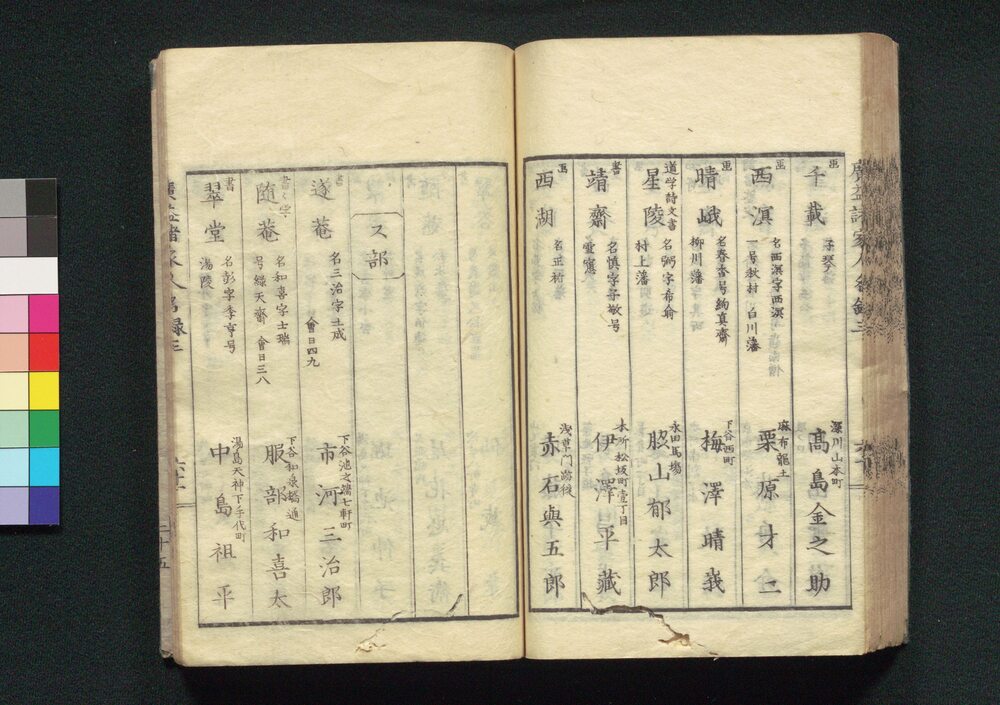 画 千載 子琴 深川山本町 高島金之助
画 西溟 名西溟字西溟 一号秋村 白川藩 麻布龍土 栗原才二
画 晴峨 名春香号絢真齋 柳川藩 下谷西町 梅澤晴峩
道学詩文書 星陵 名弼字希翁 村上藩 永田馬場 脇山郁太郎
書 靖齋 名慎字子敏号 霊窓 本所松坂町壹丁目 伊澤平藏
画 西湖 名正裕 浅草門跡後 赤石與五郎
ス部
書 遂菴 名三治字士成 會日四九 下谷池之端七軒町 市河三治郎
書く字 随菴 名和喜字士瑞 号緑天齋 會日三八 下谷和泉橋通 服部和喜太
書 翠堂 名彭字季亨号 湯陵 湯島天神下手代町 中島祖平
廣益諸家人名録三
二十五